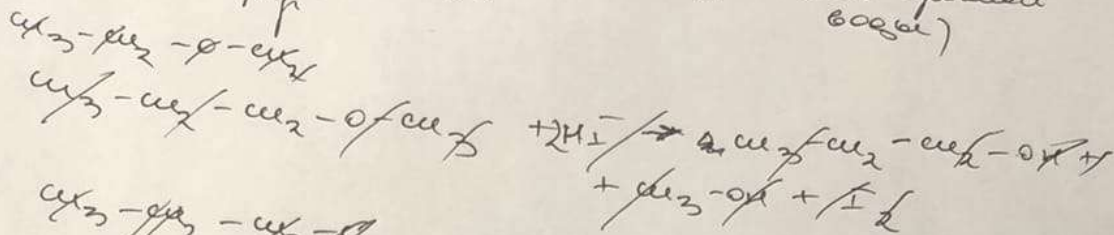 воды)
CH3-CH2-O-CH3
CH3-CH2-CH2-O-CH3 +2HI → 2 CH3-CH2-CH2-OH +
+ CH3-OH + I2
CH3-CH2-CH2-O